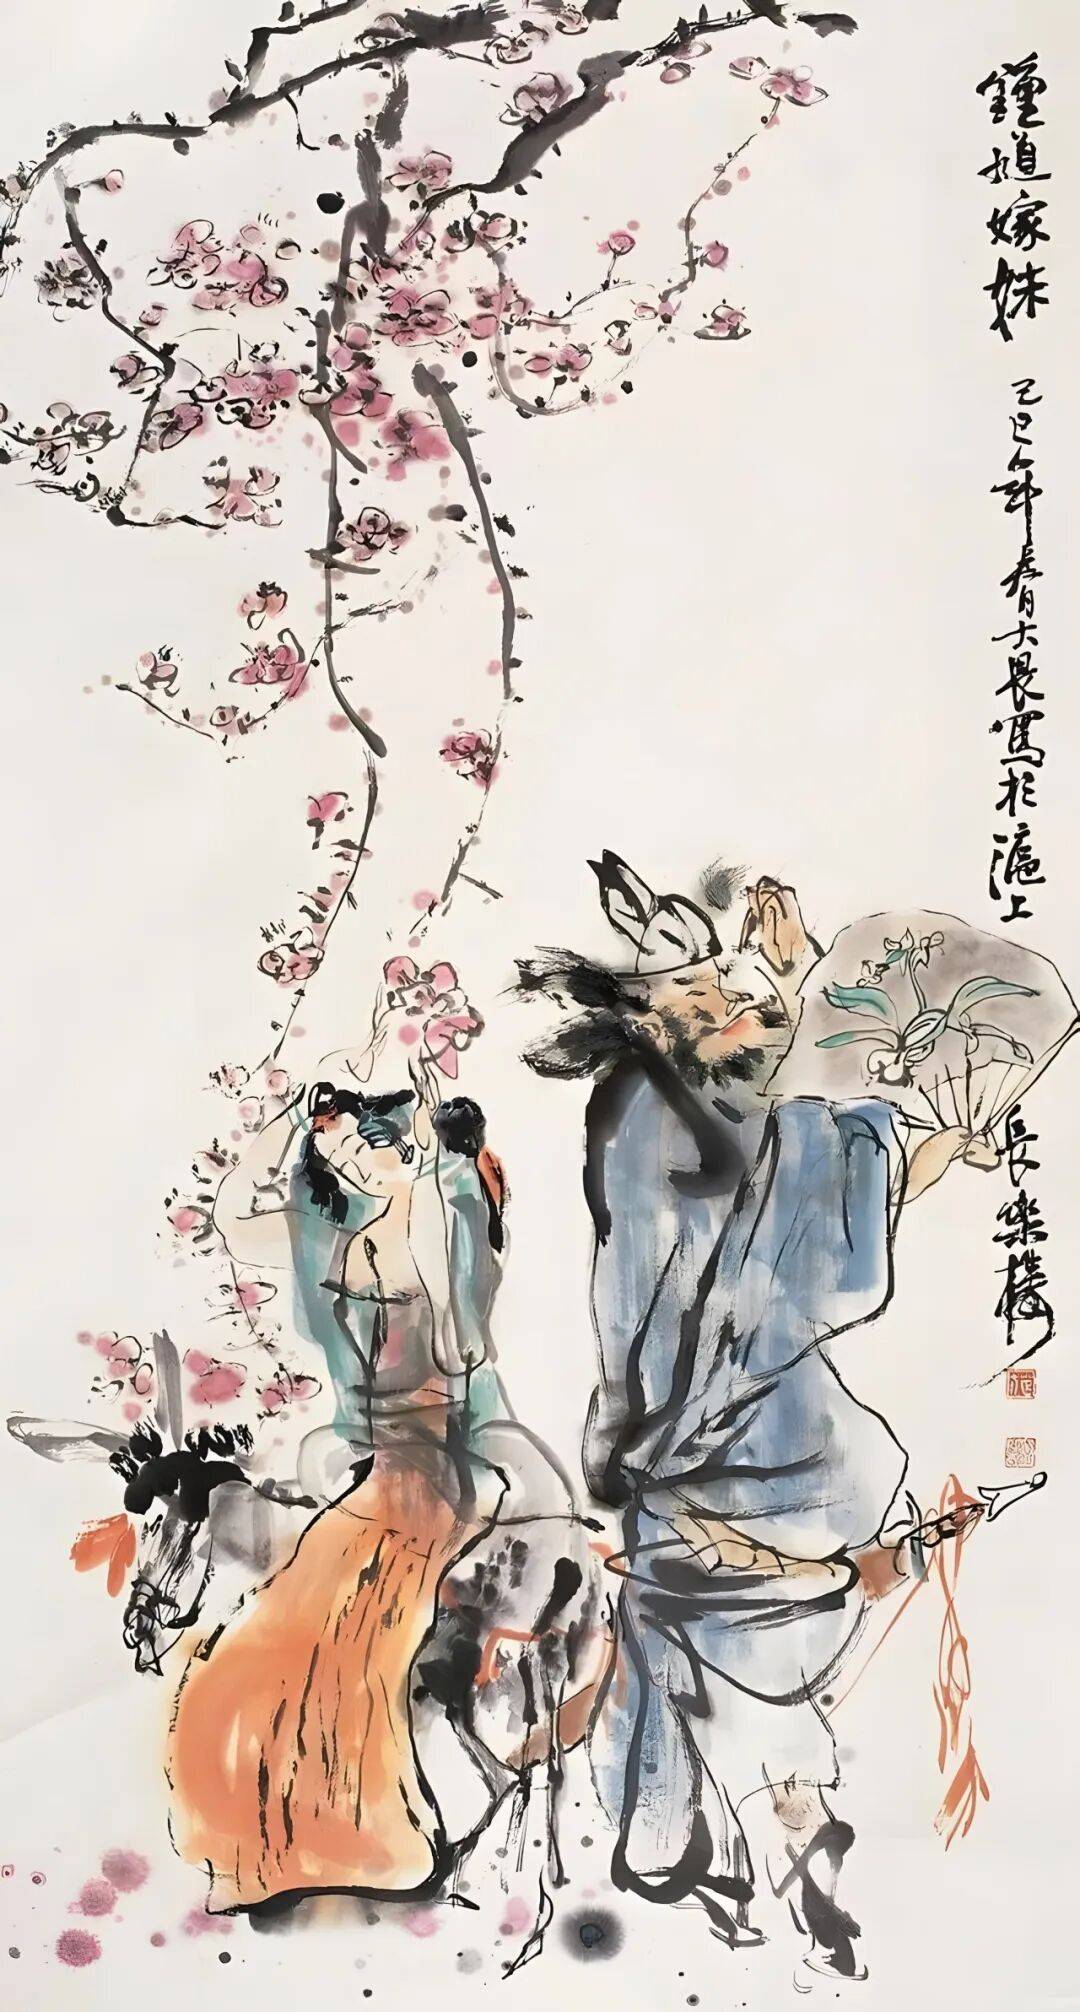 鍾馗嫁妹
己巳年春月大畏寫於滬上
長樂樓